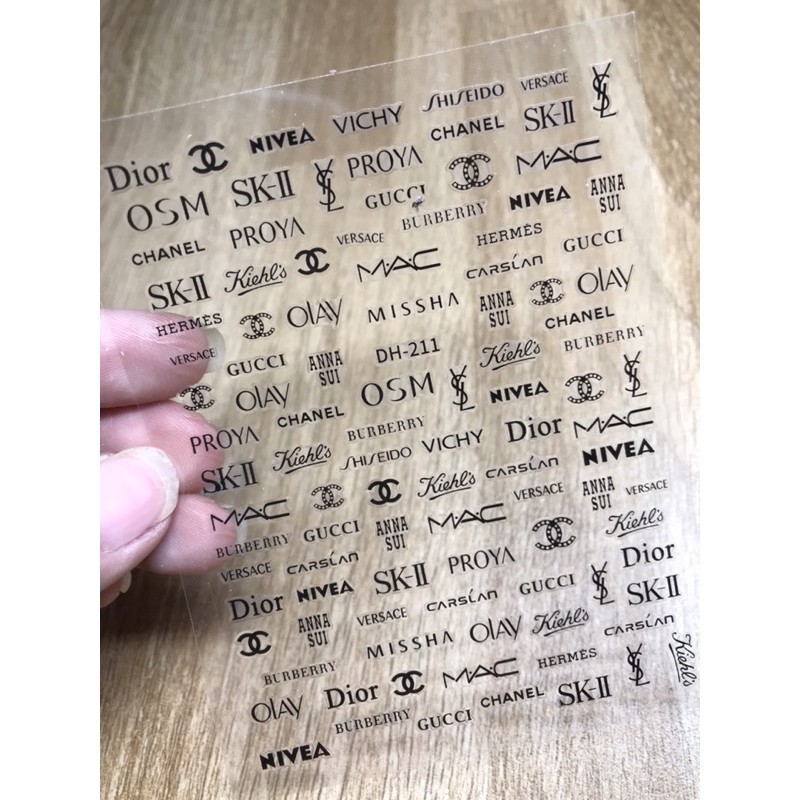 Dior NIVEA VICHY SHISEIDO VERSACE YSL
OSM SK-II YSL PROYA CHANEL SK-II
CHANEL PROYA GUCCI MAC
VERSACE BURBERRY NIVEA ANNA SUI
SK-II Kiehl's MAC HERMĒS GUCCI
HERMĒS OLAY MISSHA CARSLAN OLAY
VERSACE GUCCI ANNA SUI DH-211 ANNA SUI CHANEL
OLAY OSM YSL Kiehl's BURBERRY
PROYA CHANEL BURBERRY NIVEA YSL
SK-II Kiehl's SHISEIDO VICHY Dior MAC
MAC Kiehl's CARSLAN NIVEA
BURBERRY GUCCI ANNA SUI MAC VERSACE ANNA SUI VERSACE
VERSACE CARSLAN SK-II PROYA Kiehl's
Dior NIVEA VERSACE CARSLAN GUCCI YSL Dior
ANNA SUI MISSHA OLAY Kiehl's SK-II
BURBERRY MAC HERMĒS CARSLAN
OLAY Dior CHANEL SK-II YSL Kiehl's
BURBERRY GUCCI
NIVEA